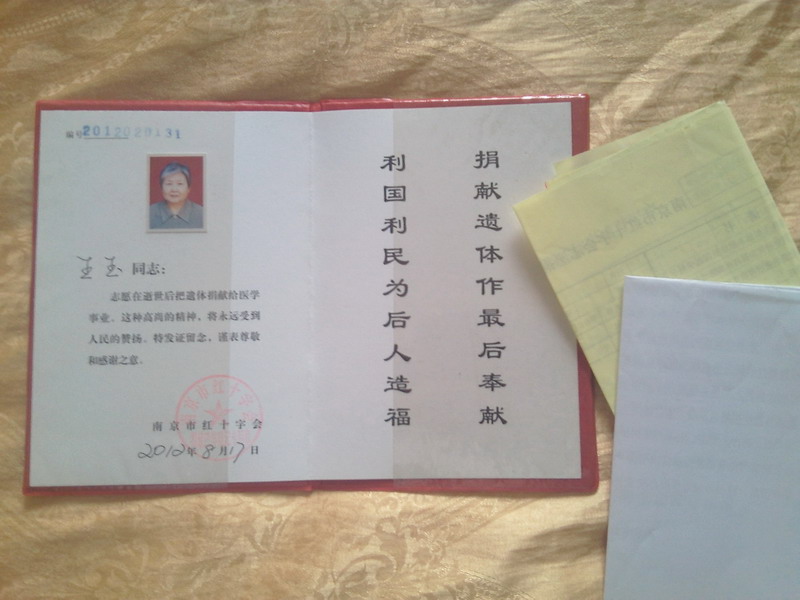 编号2012020131
王玉 同志：
志愿在逝世后把遗体捐献给医学
事业。这种高尚的精神，将永远受到
人民的赞扬。特发证留念，谨表尊敬
和感谢之意。
南京市红十字会
2012年8月17日
捐献遗体作最后奉献
利国利民为后人造福